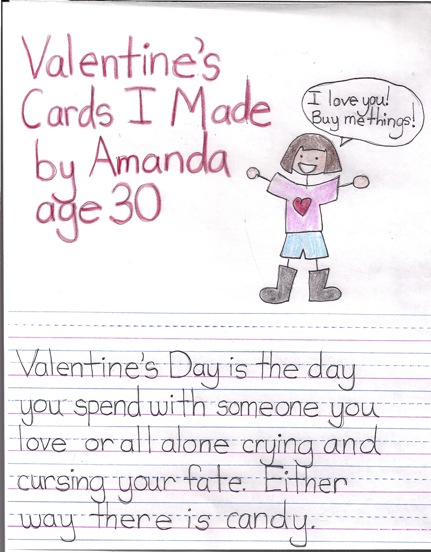 Valentine's
Cards I Made
by Amanda
age 30
I love you!
Buy me things!
Valentine's Day is the day
you spend with someone you
love or all alone crying and
cursing your fate. Either
way there is candy.